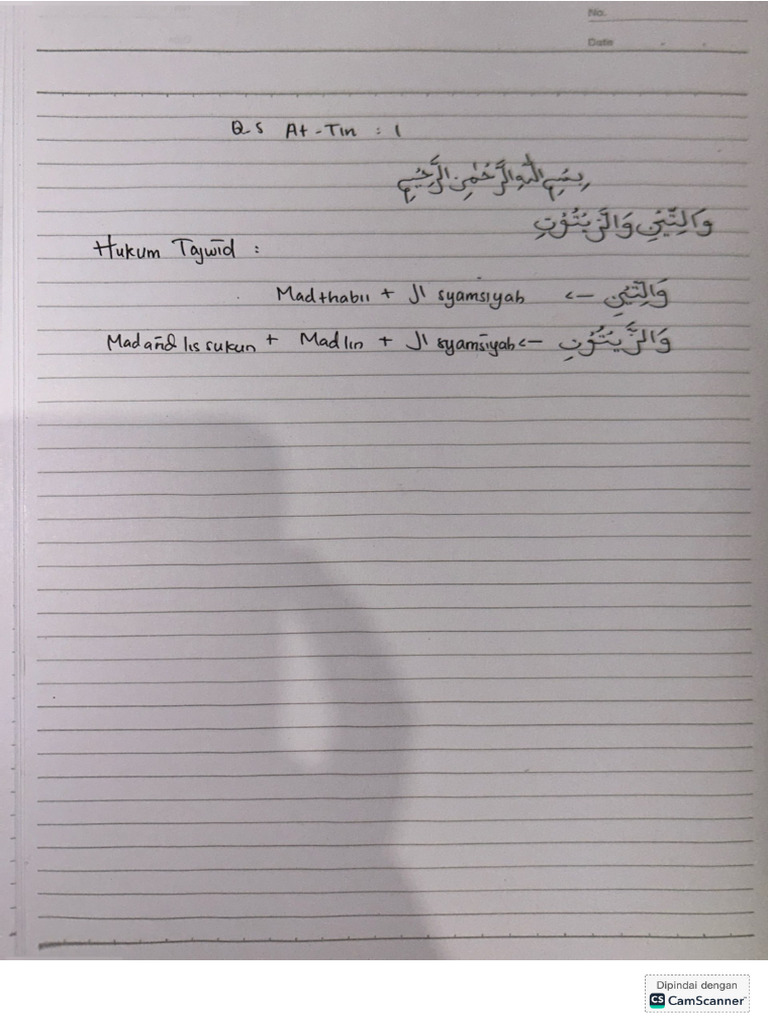 No.
Date
Q.S At-Tin : 1
بِسْمِ اللهِ الرَّحْمٰنِ الرَّحِيْمِ
وَالتِّيْنِ وَالزَّيْتُوْنِ
Hukum Tajwid :
Madthabii + ال syamsiyah <- وَالتِّيْنِ
Mad arid lis sukun + Mad lin + ال syamsiyah <- وَالزَّيْتُوْنِ
Dipindai dengan
CS CamScanner